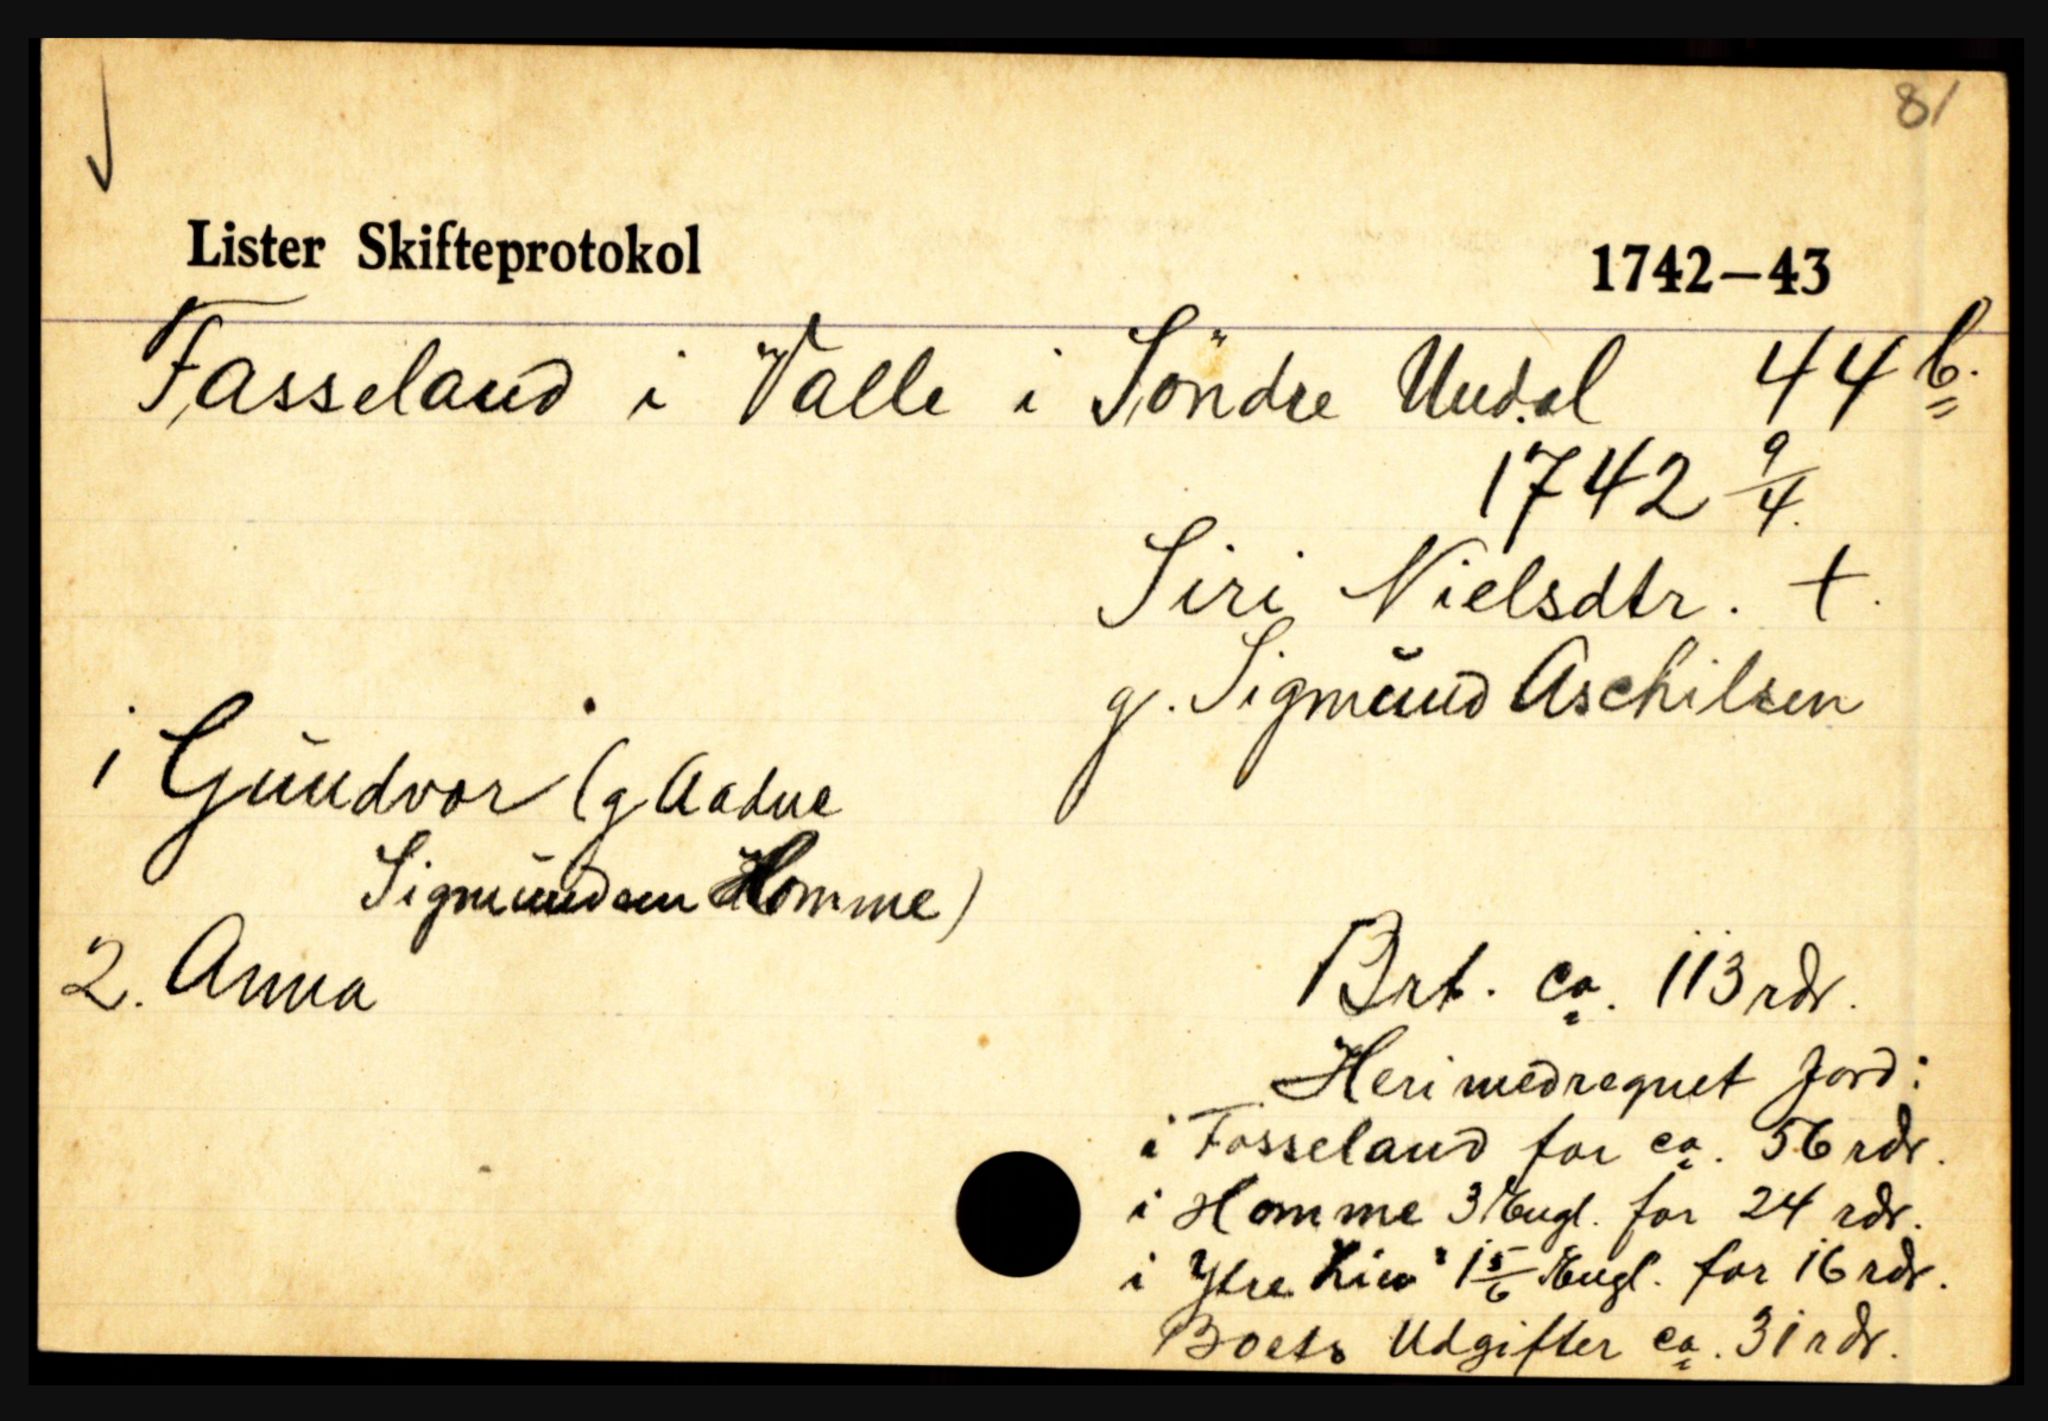 81
Lister Skifteprotokol 1742–43
Fasseland i Valle i Söndre Undal 44 b.
1742 9/4.
Siri Nielsdtr. †.
g. Sigmund Aschilsen
1 Gundvor (g Aadne
Sigmundsen Homme)
2. Anna
Brt. ca. 113 rdr.
Heri medregnet Jord:
i Fasseland for ca. 56 rdr.
i Homme 3 Engl. for 24 rdr.
i Ytre 1 5/6 Engl. for 16 rdr.
Boets Udgifter ca. 31 rdr.